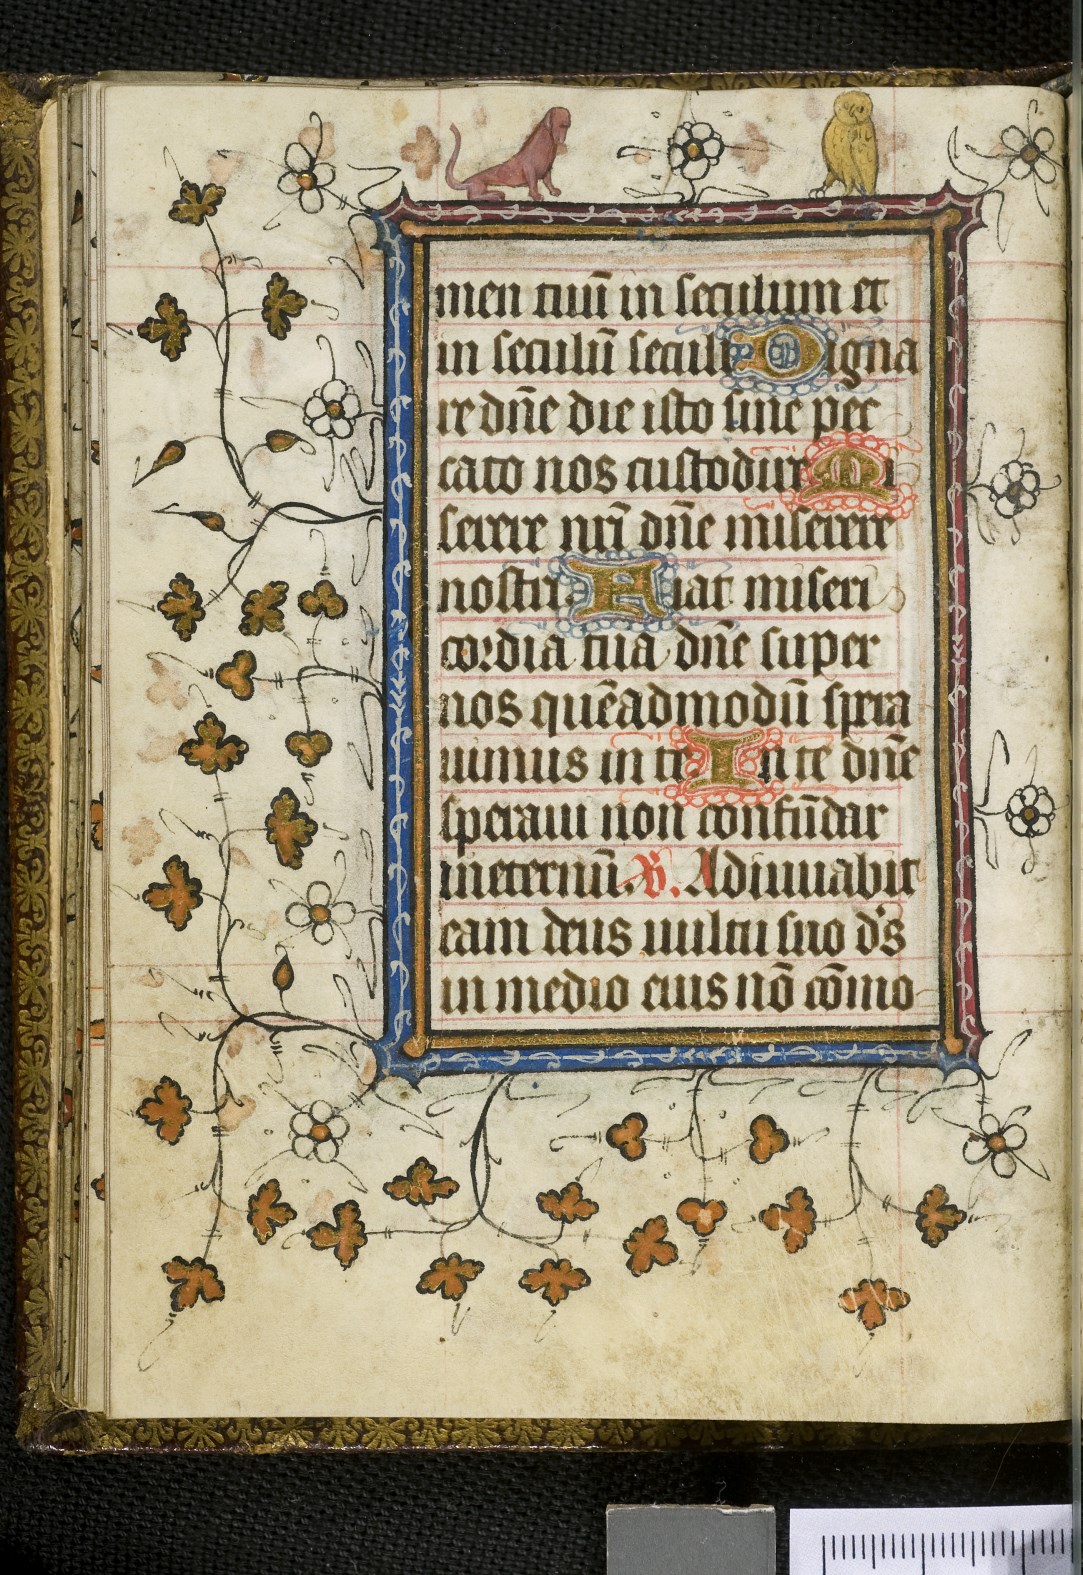 men tuū in seculum et
in seculū seculi Digna
re dn̄e die isto sine pec
cato nos custodire Mi
serere nrī dn̄e miserere
nostri Fiat miseri
cordia tua dn̄e super
nos quēadmodū spera
uimus in te In te dn̄e
speraui non confūdar
in eternū. R. Adiuuabit
eam deus uultu suo d's
in medio eius nō cōmo